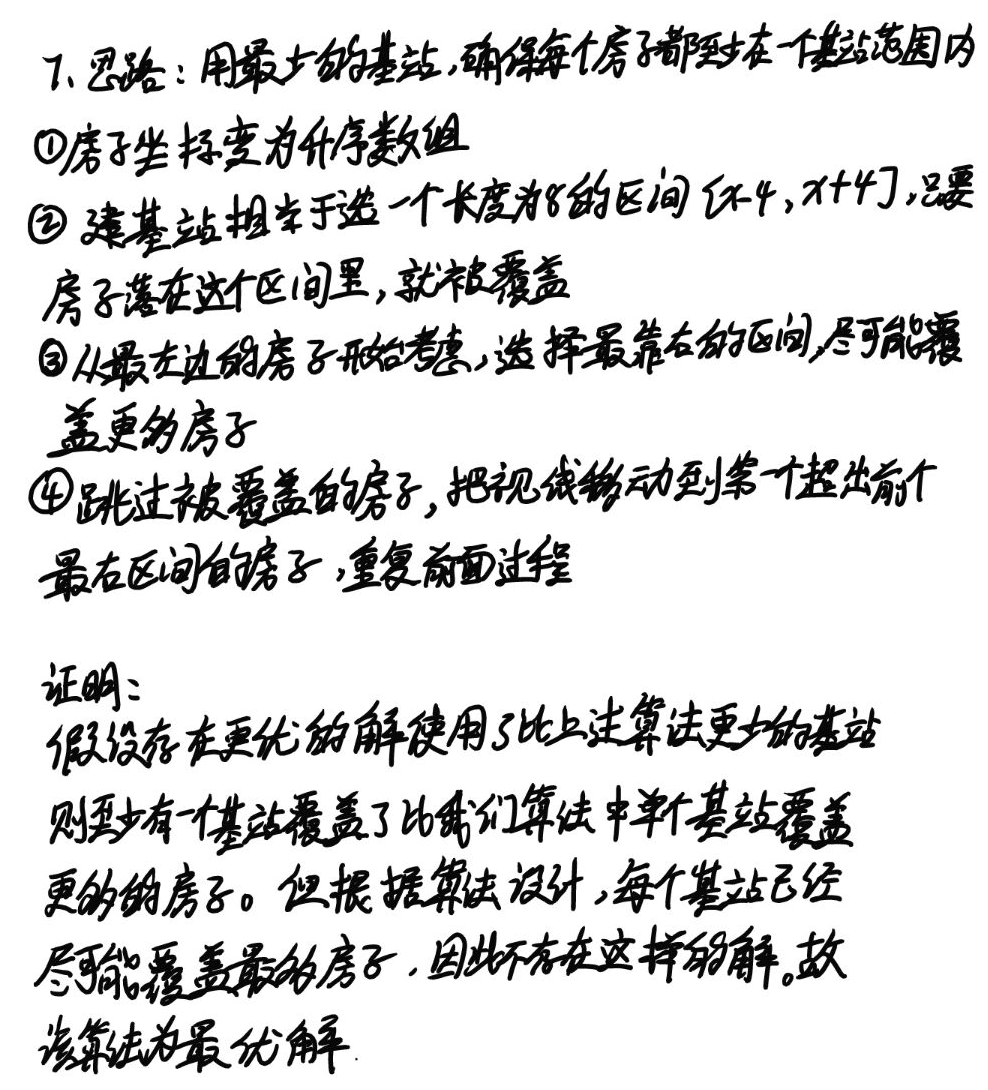 7、思路：用最少的基站，确保每个房子都至少在一个基站范围内
①房子坐标变为升序数组
② 建基站相当于选一个长度为8的区间 [x-4，x+4]，只要
房子落在这个区间里，就被覆盖
③从最左边的房子开始考虑，选择最靠右的区间，尽可能覆
盖更多房子
④跳过被覆盖的房子，把视线移动到第一个超出前个
最右区间的房子，重复前面过程
证明：
假设存在更优的解使用了比上述算法更少的基站
则至少有一个基站覆盖了比我们算法中单个基站覆盖
更多的房子。但根据算法设计，每个基站已经
尽可能覆盖最多房子，因此不存在这样的解。故
该算法为最优解.